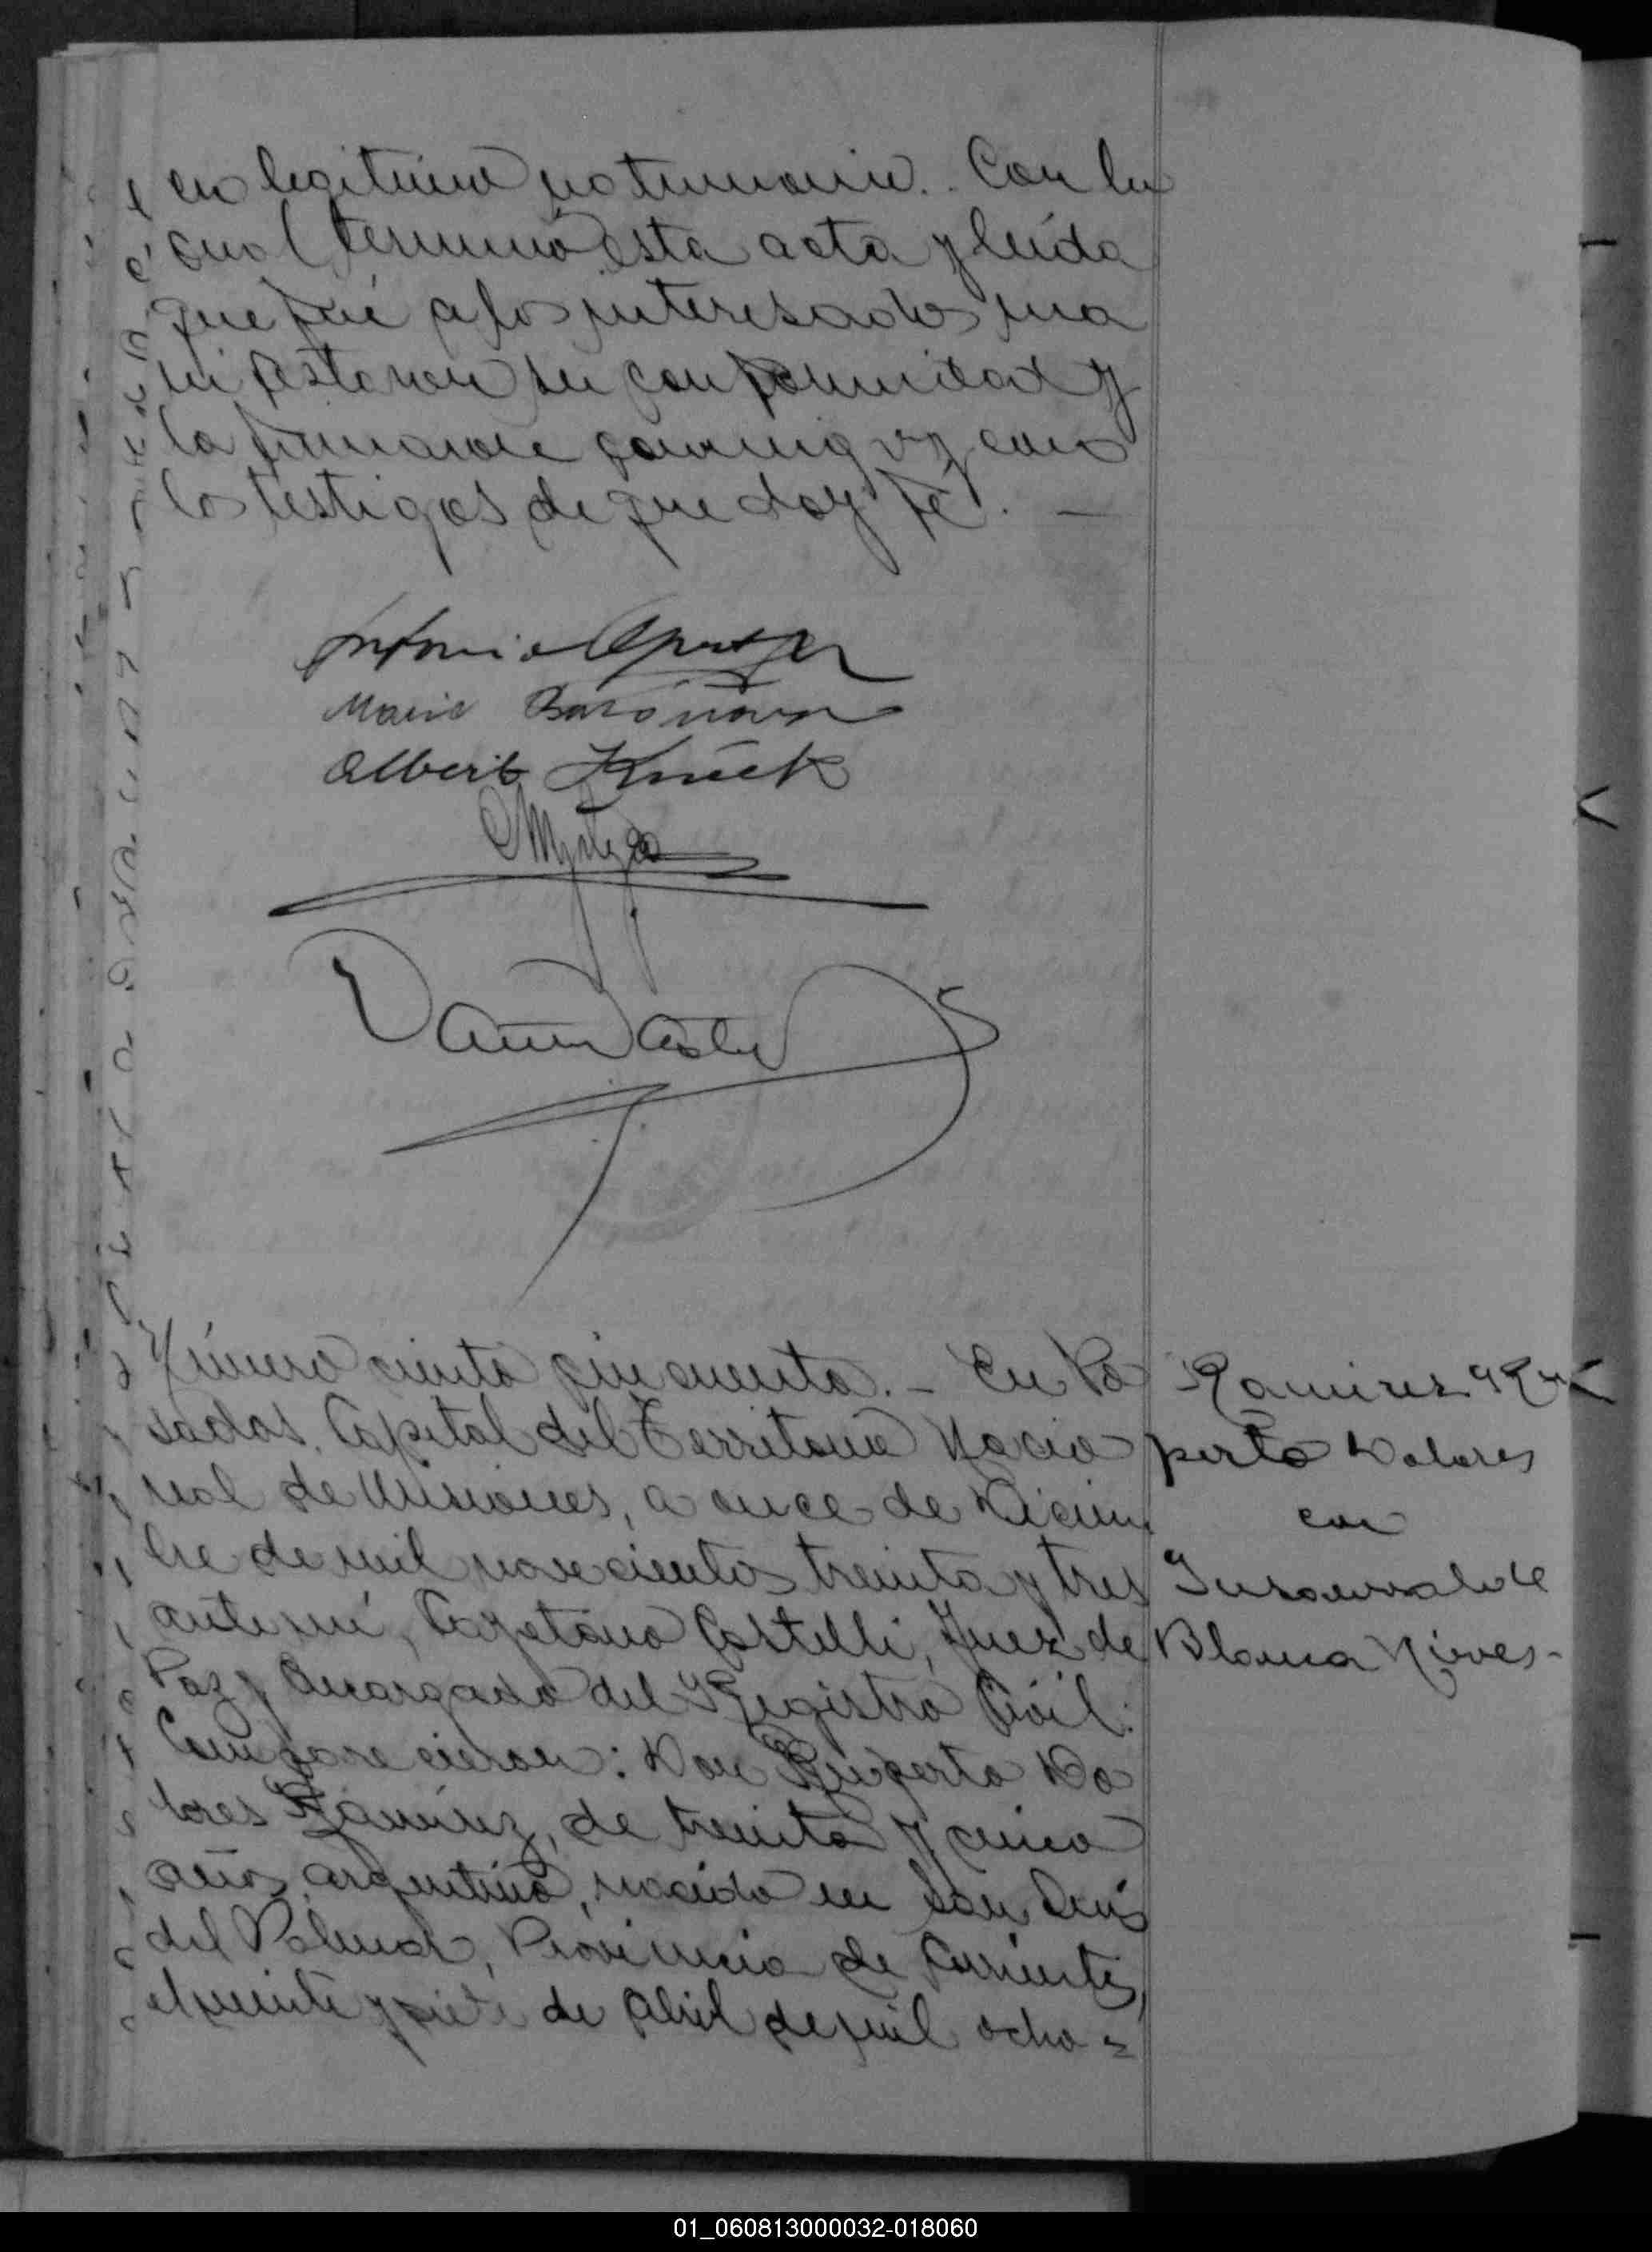 en legítimo matrimonio. Con lo
cual terminó esta acta y leída
que fué a los interesados ma
nifestaron su conformidad y
la firmaron conmigo y con
los testigos de que doy fé. —
Antonio
Maria
Albert
Número ciento cincuenta. – En Po
sadas, Capital del Territorio Nacio
nal de Misiones, a once de Diciem
bre de mil novecientos treinta y tres
ante mí, Cayetano Castelli, Juez de
Paz y Encargado del Registro Civil:
Comparecieron: Don Ruperto Do
lores Ramírez, de treinta y cinco
años, argentino, nacido en San Luis
del Palmar, Provincia de Corrientes,
el veinte y siete de Abril de mil ocho =
Ramirez Ru
perto Dolores
con
Insaurralde
Blanca Nieves -
01_060813000032-018060